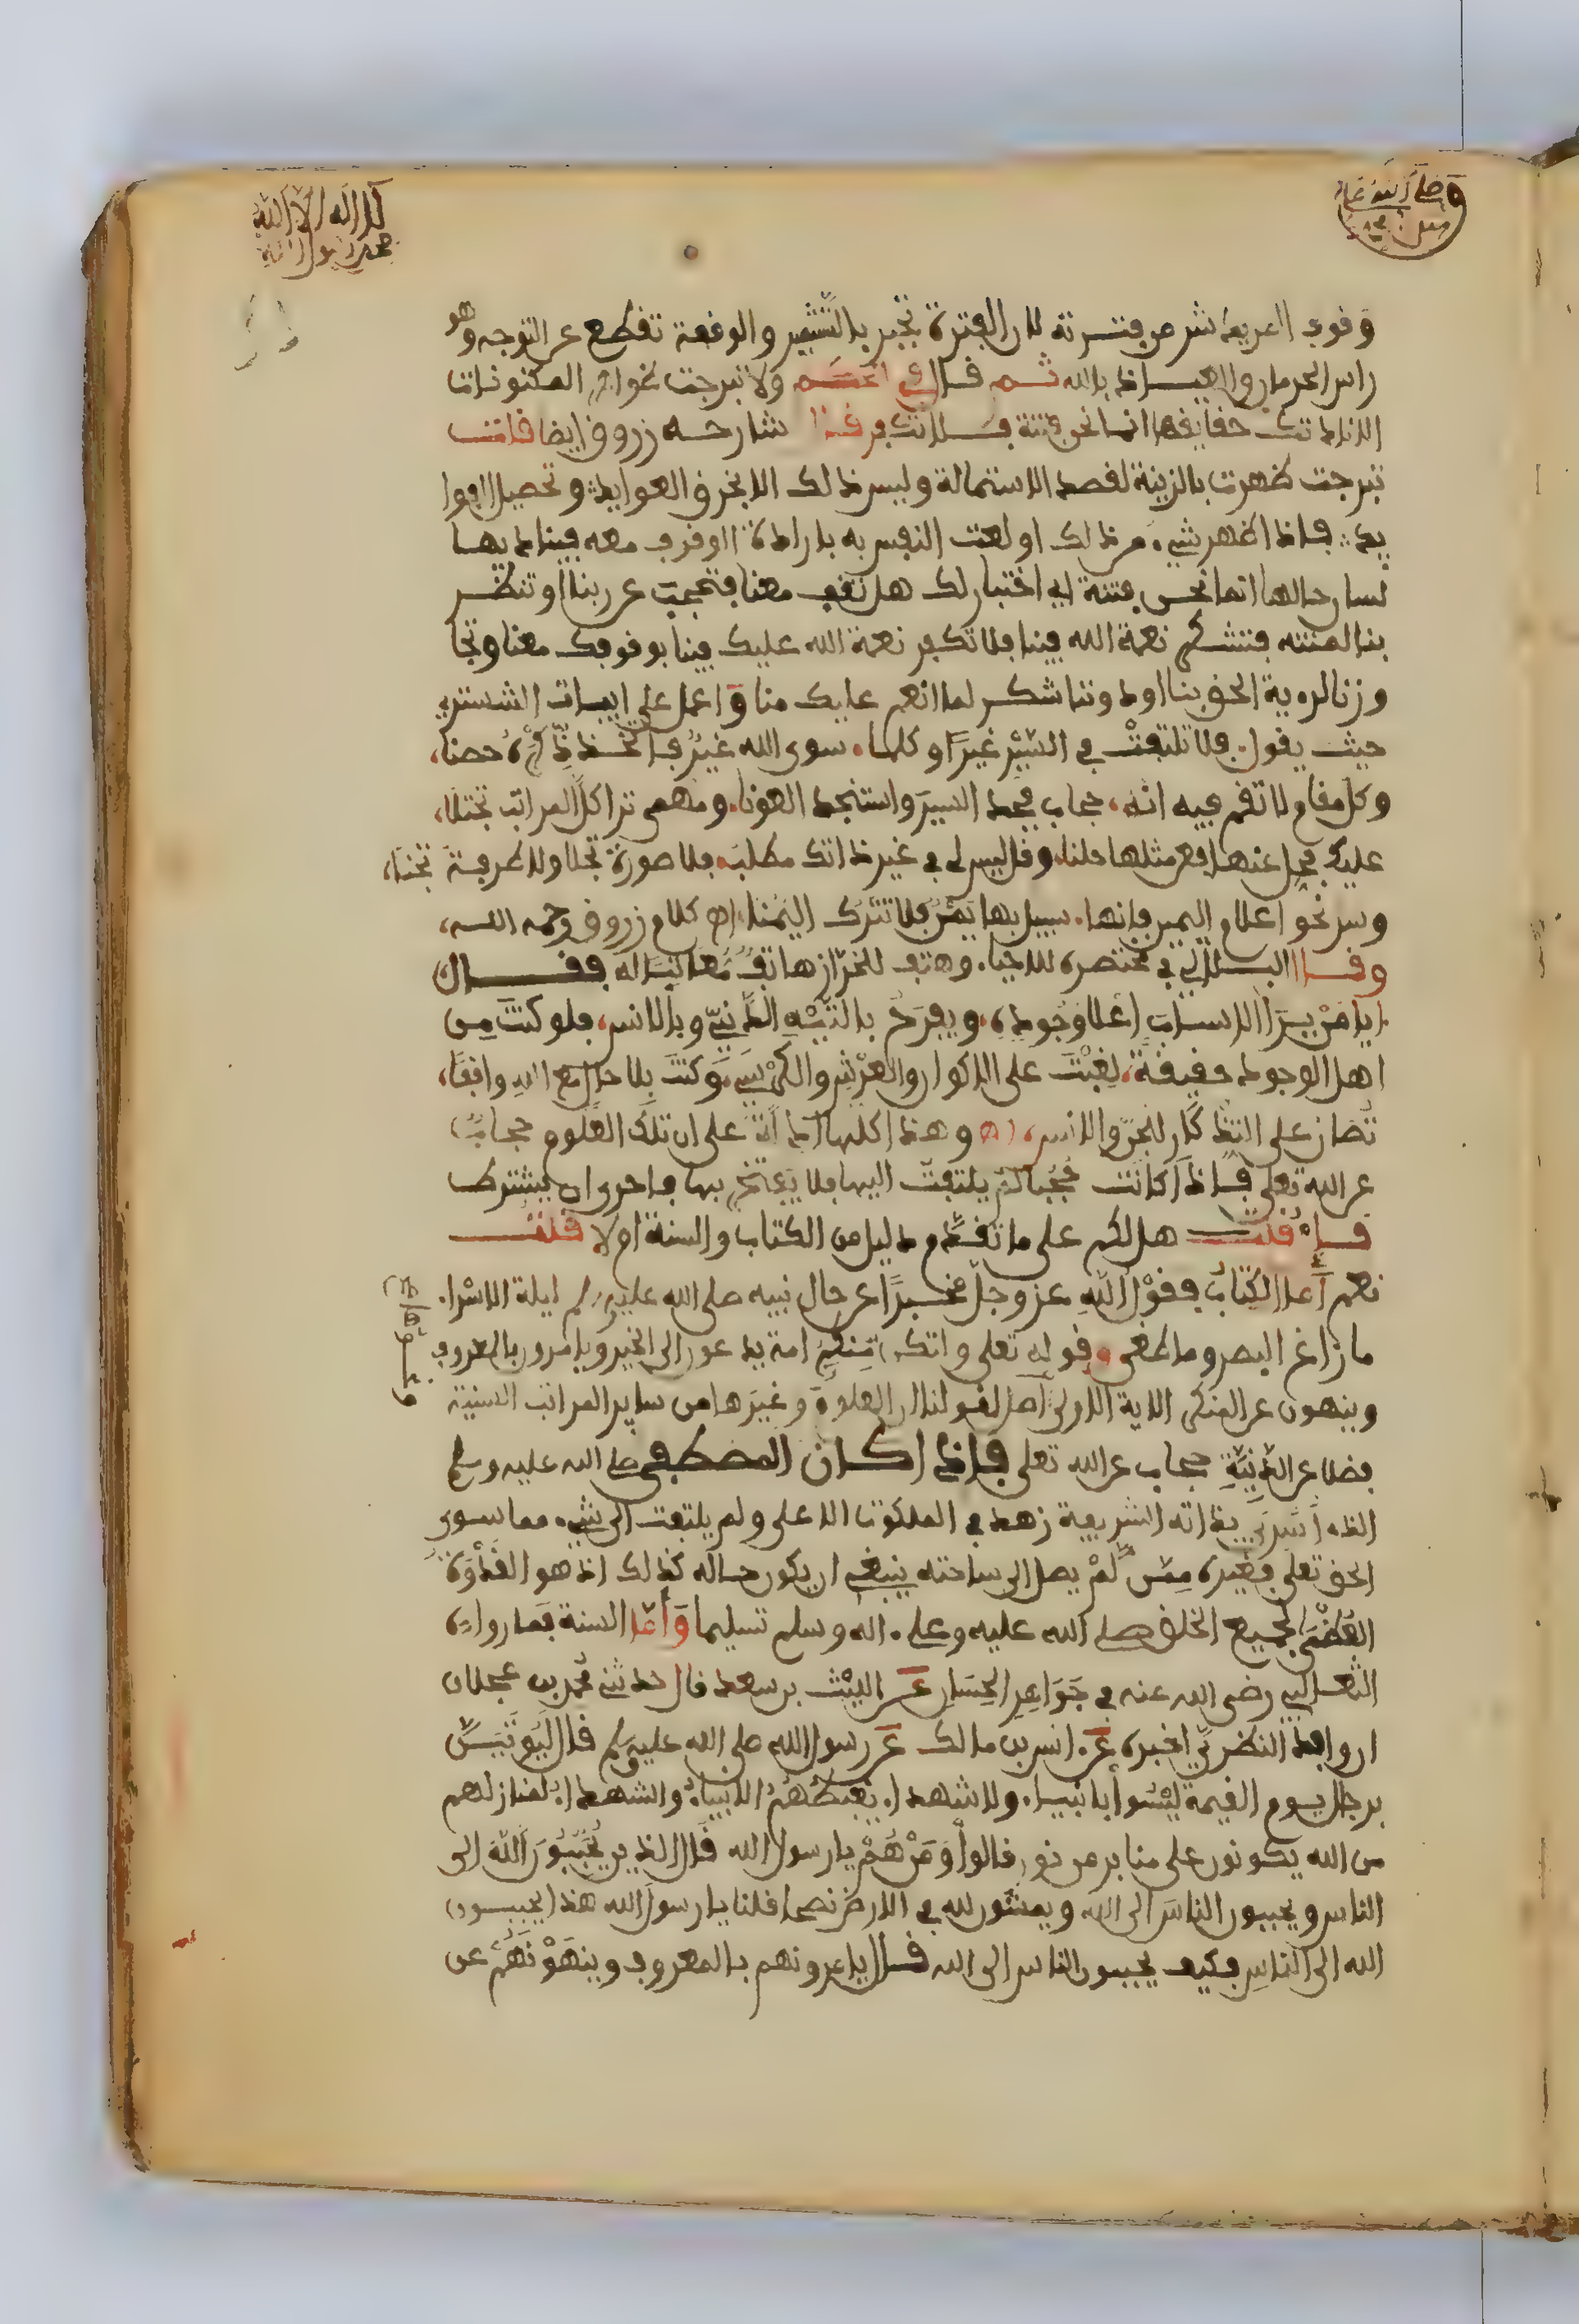 لا اله الا الله
محمد رسول الله
وصلى الله على
وقوف المريد شر من فترته لان الفترة تجبر بالتشمير والوقفة تقطع عن التوجه وهو
راس الحرمان والعياذ بالله ثم قال في الحكم ولا تبرجت ظواهر المكنونات
الا نادتك حقايقها انما نحن فتنة فلا تكفر قال شارحه زروق ايضا قلت
تبرجت ظهرت بالزينة لقصد الاستمالة وليس ذلك الا بخرق العوايد وتحصيل الفوا
يد فاذا ظهر شيء من ذلك او لعت النفس به بارادة الوقوف معه فيناديها
لسان حالها انما نحن فتنة اي اختبار لك هل تقف معنا فتحجب عن ربنا او تنظر
بنا لمنته فتشكر نعمة الله فينا فلا تكفر نعمة الله عليك فينا بوقوفك معنا وتجا
وزنا لرءية الحق بنا او دوننا شكر لما انعم عليك منا واعمل على ابيات الششتري
حيث يقول فلا تلتفت في السير غيرا وكلما سوى الله غير فاتخذ ذكره حصنا
وكل مقام لا تقم فيه انه حجاب فجد السير واستنجد العونا ومهمى ترا كل المراتب تجتلا
عليك فحل عنها فعن مثلها حلنا وقل ليس لي في غير ذاتك مطلب فلا صورة تجلا ولا طرفة تجنا
وسر نحو اعلام اليمين فانها سبيل بها يمن فلا تترك اليمنا اه كلام زروق رحمه الله
وقال البلالي في مختصره للاحيا وهتف للخراز هاتف معاتبا له فقال
ايا من يرا الاسباب اعلا وجوده ويفرح بالتيه الدني وبالانس فلو كنت من
اهل الوجود حقيقة لغبت على الاكوان والعرش والكرسي وكنت بلا حال مع الله واقفا
تصان على التذكار للجن والانس اه وهذا كلها دالة على ان تلك العلوم حجاب
عن الله تعلى فاذا كانت حجبا لم يلتفت اليها فلا يفتخر بها فاحرى ان يشترط
فان قلت هل لكم على ما تقدم دليل من الكتاب والسنة ام لا قلت
نعم اما الكتاب فقول الله عز وجل مخبرا عن حال نبيه صلى الله عليه وسلم ليلة الاسرا
ما زاغ البصر وما طغى وقوله تعلى ولتكن منكم امة يدعون الى الخير ويامرون بالمعروف
وينهون عن المنكر الاية الاولى اصل لقولنا ان العلوم وغيرها من ساير المراتب السنية
فضلا عن الدنية حجاب عن الله تعلى فاذا كان المصطفى صلى الله عليه وسلم
الذي اسري بذاته الشريفة زهد في الملكوت الاعلى ولم يلتفت الى شيء مما سوى
الحق تعلى فغيره ممن لم يصل الى ساحته ينبغي ان يكون حاله كذلك اذ هو القدوة
العظمى لجميع الخلق صلى الله عليه وعلى اله وسلم تسليما واما السنة فما رواه
الثعالبي رضي الله عنه في جواهر الحسان عن الليث بن سعد قال حدثني محمد بن عجلان
ان وافد النضري اخبره عن انس بن مالك عن رسول الله صلى الله عليه وسلم قال ليوتين
برجال يوم القيمة ليسوا بانبياء ولا شهداء يغبطهم الانبياء والشهداء لمنازلهم
من الله يكونون على منابر من نور قالوا ومن هم يا رسول الله قال الذين يحببون الله الى
الناس ويحببون الناس الى الله ويمشون لله في الارض نصحا قلنا يا رسول الله هذا يحببون
الله الى الناس فكيف يحببون الناس الى الله قال يامرونهم بالمعروف وينهونهم عن